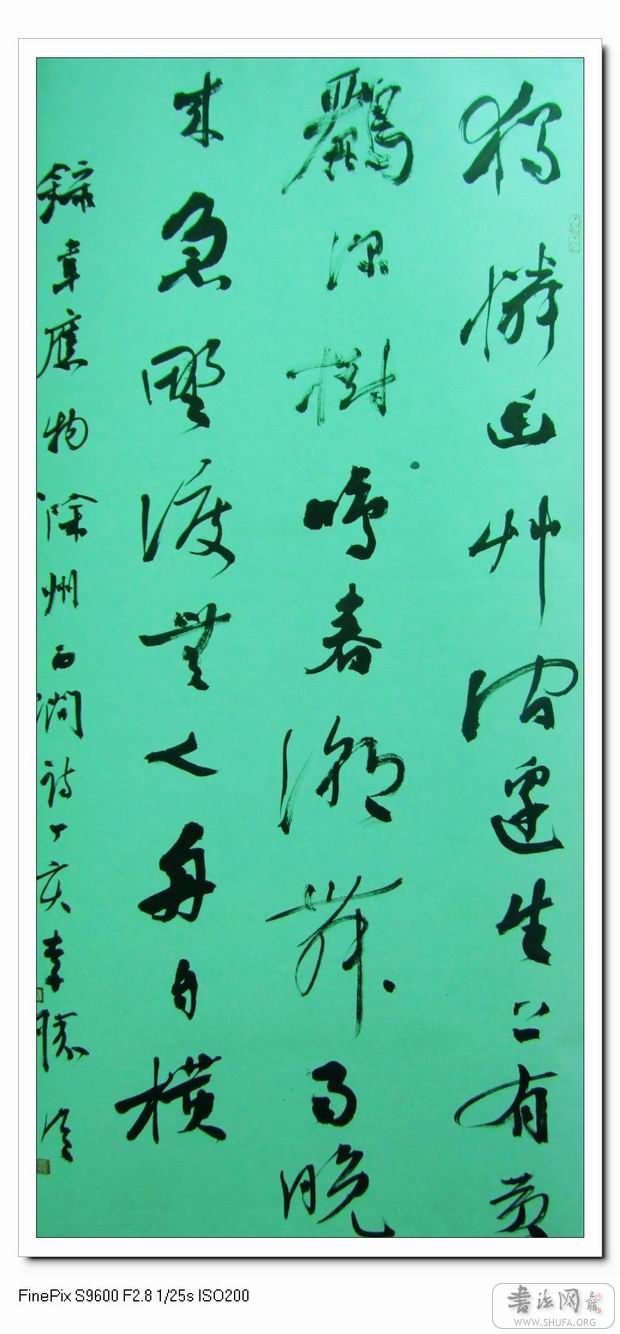 獨憐幽艸澗邊生上有黃
鸝深樹鳴春潮帶雨晚
來急野渡無人舟自橫
錄韋應物滁州西澗詩丁亥李勝
FinePix S9600 F2.8 1/25s ISO200
书法网
WWW.SHUFA.ORG